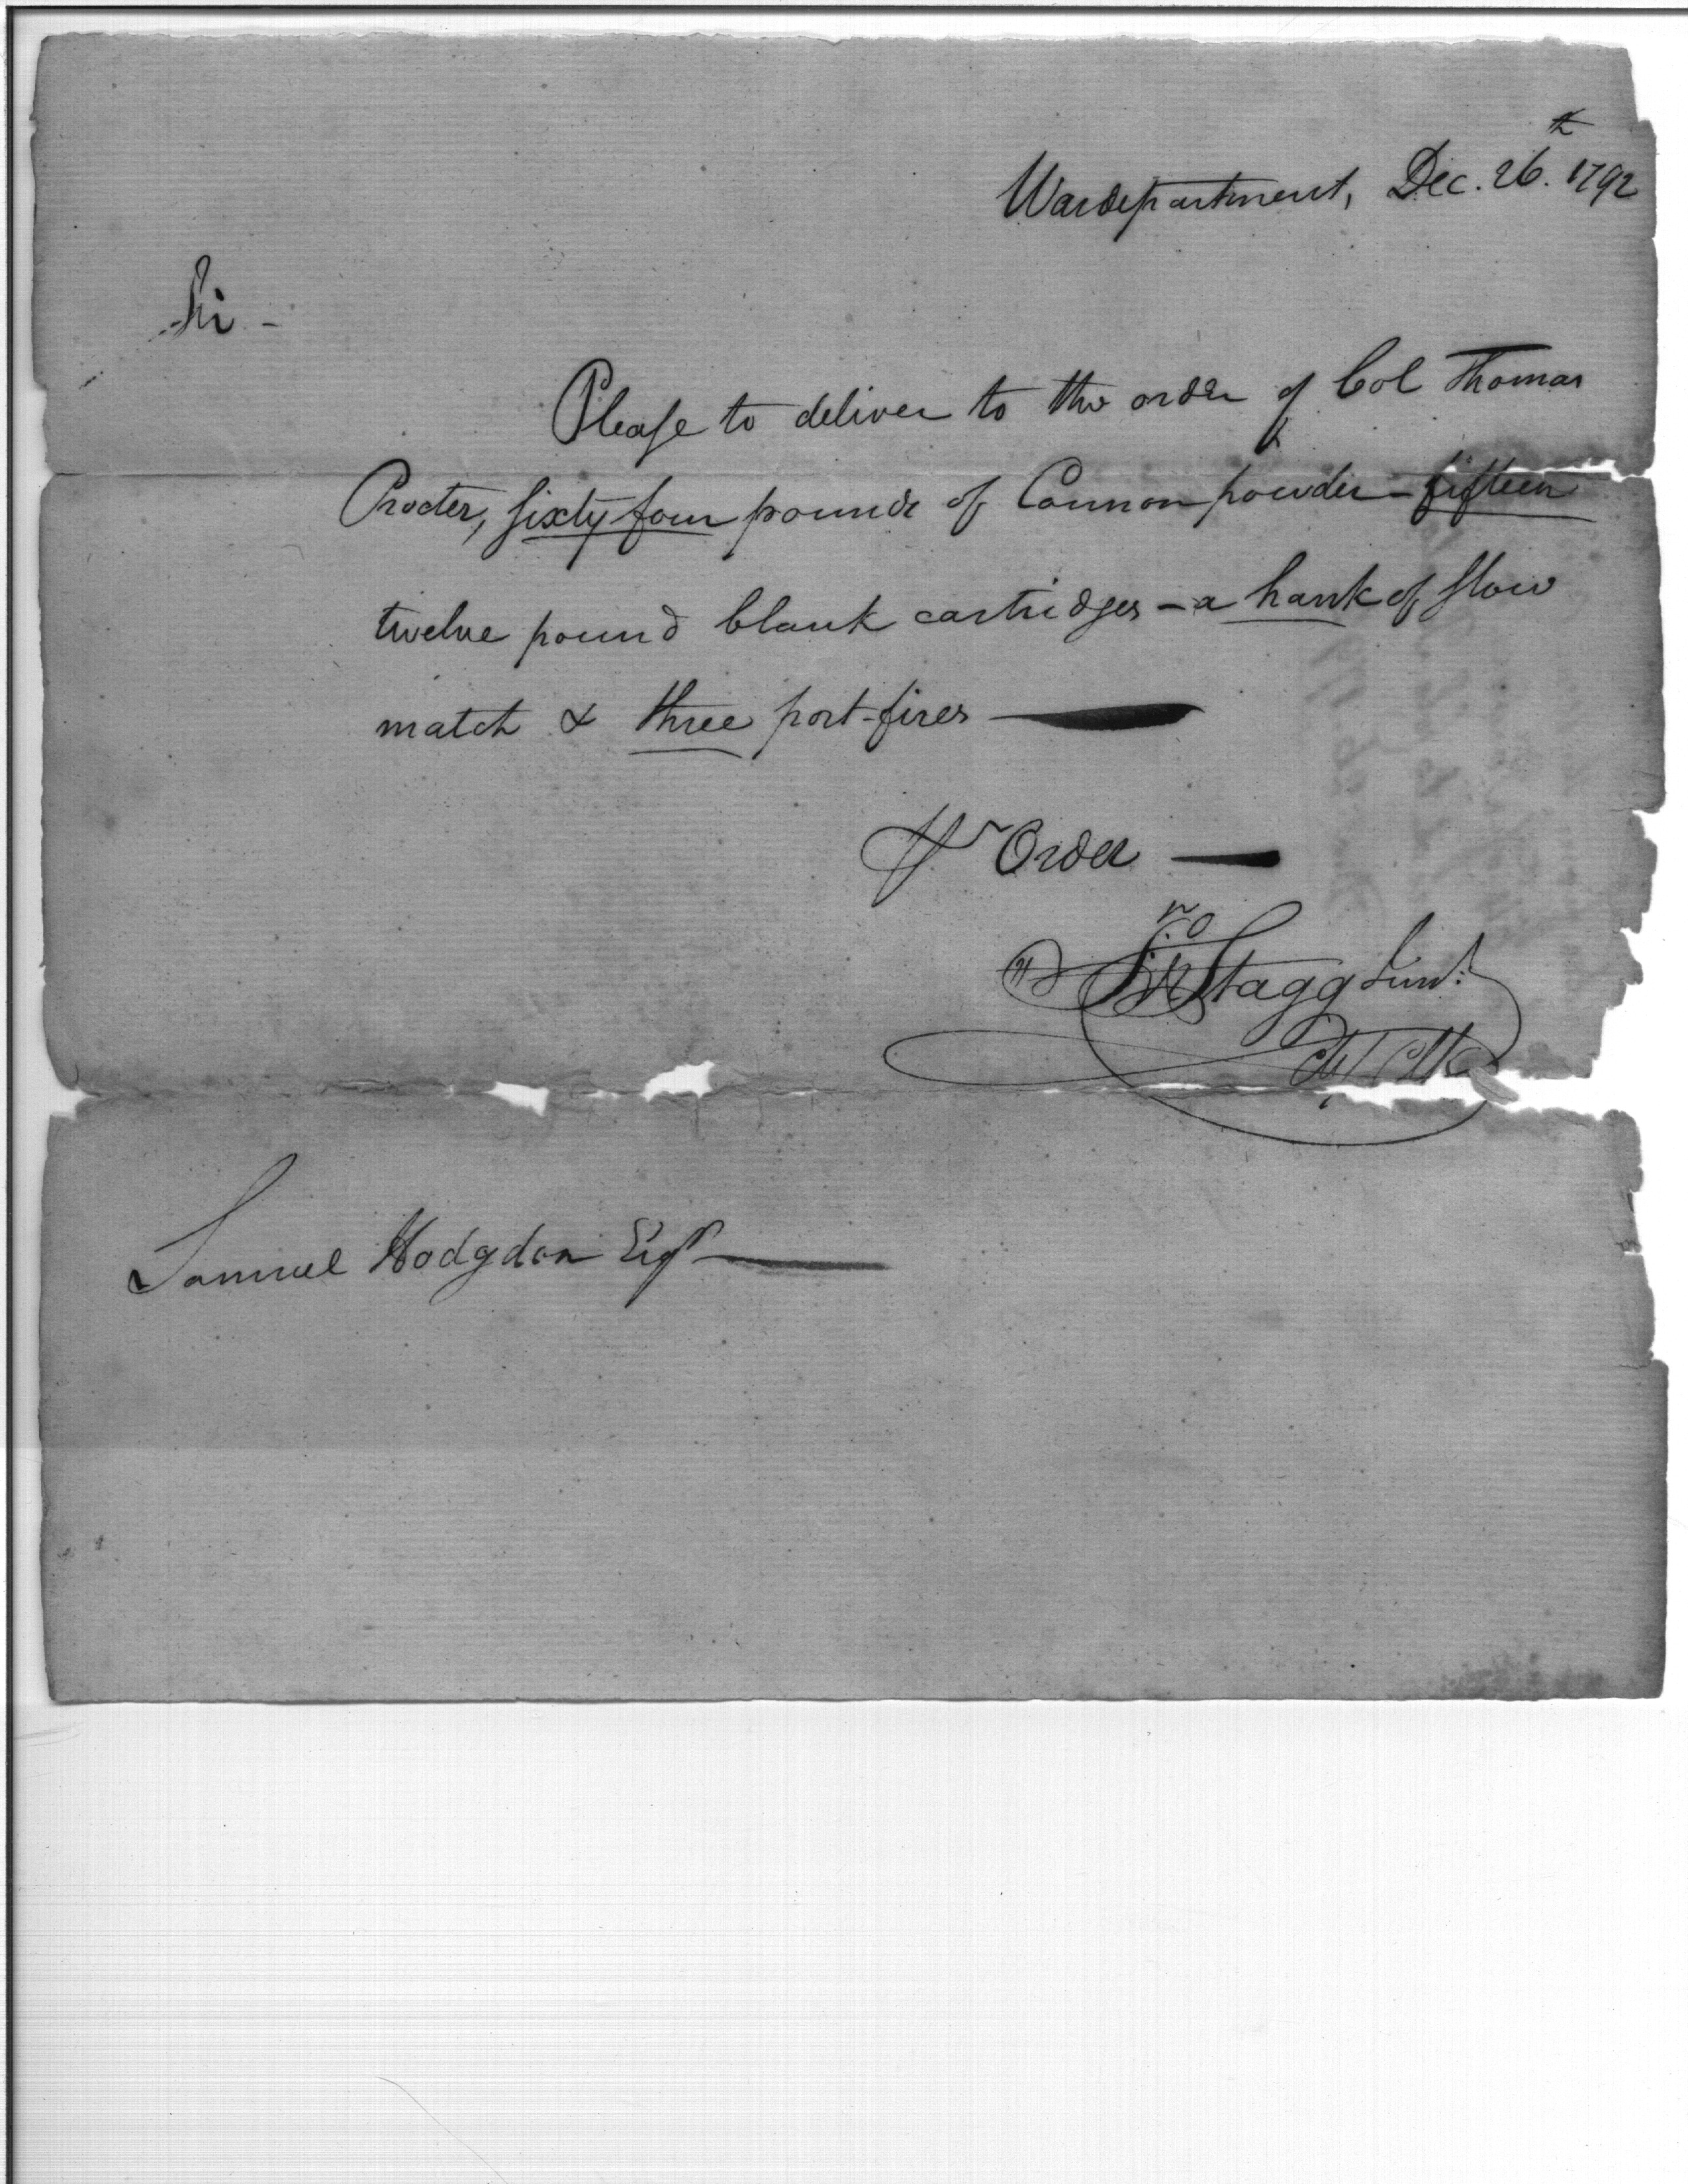 Wardepartment, Dec. 26.th 1792
Sir -
Please to deliver to the order of Col Thomas
Procter, sixty four pounds of Cannon powder - fifteen
twelve pound blank cartridges - a hank of slow
match & three port-fires
Pr Order
Jno Stagg Junr.
Chf Clk
Samuel Hodgdon Esqr